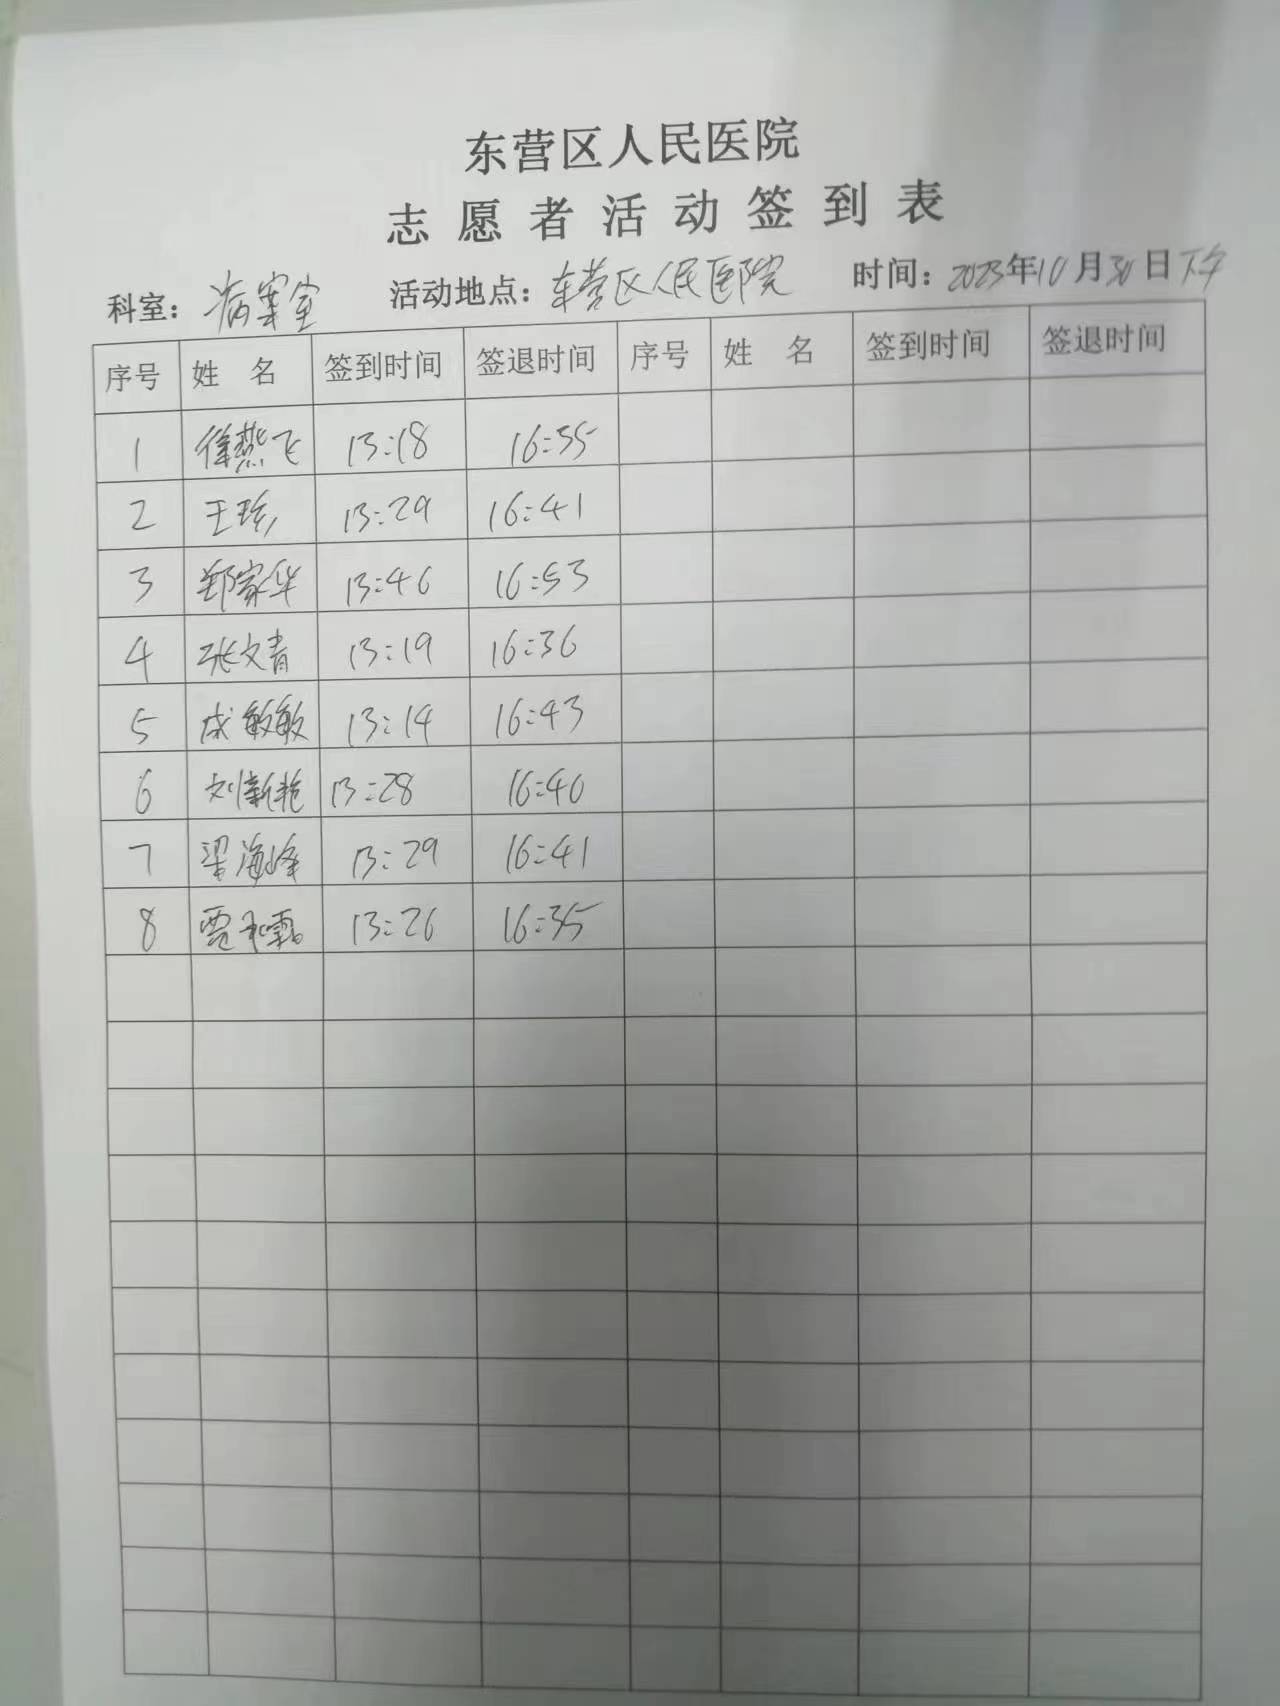 东营区人民医院
志愿者活动签到表
科室：病案室 活动地点：东营区人民医院 时间：2023年10月30日下午
序号 姓名 签到时间 签退时间 序号 姓名 签到时间 签退时间
1 徐燕飞 13:18 16:35
2 王珍 13:29 16:41
3 郑家华 13:46 16:53
4 张文青 13:19 16:36
5 成敏敏 13:14 16:43
6 刘新艳 13:28 16:40
7 梁海峰 13:29 16:41
8 贾 13:26 16:35